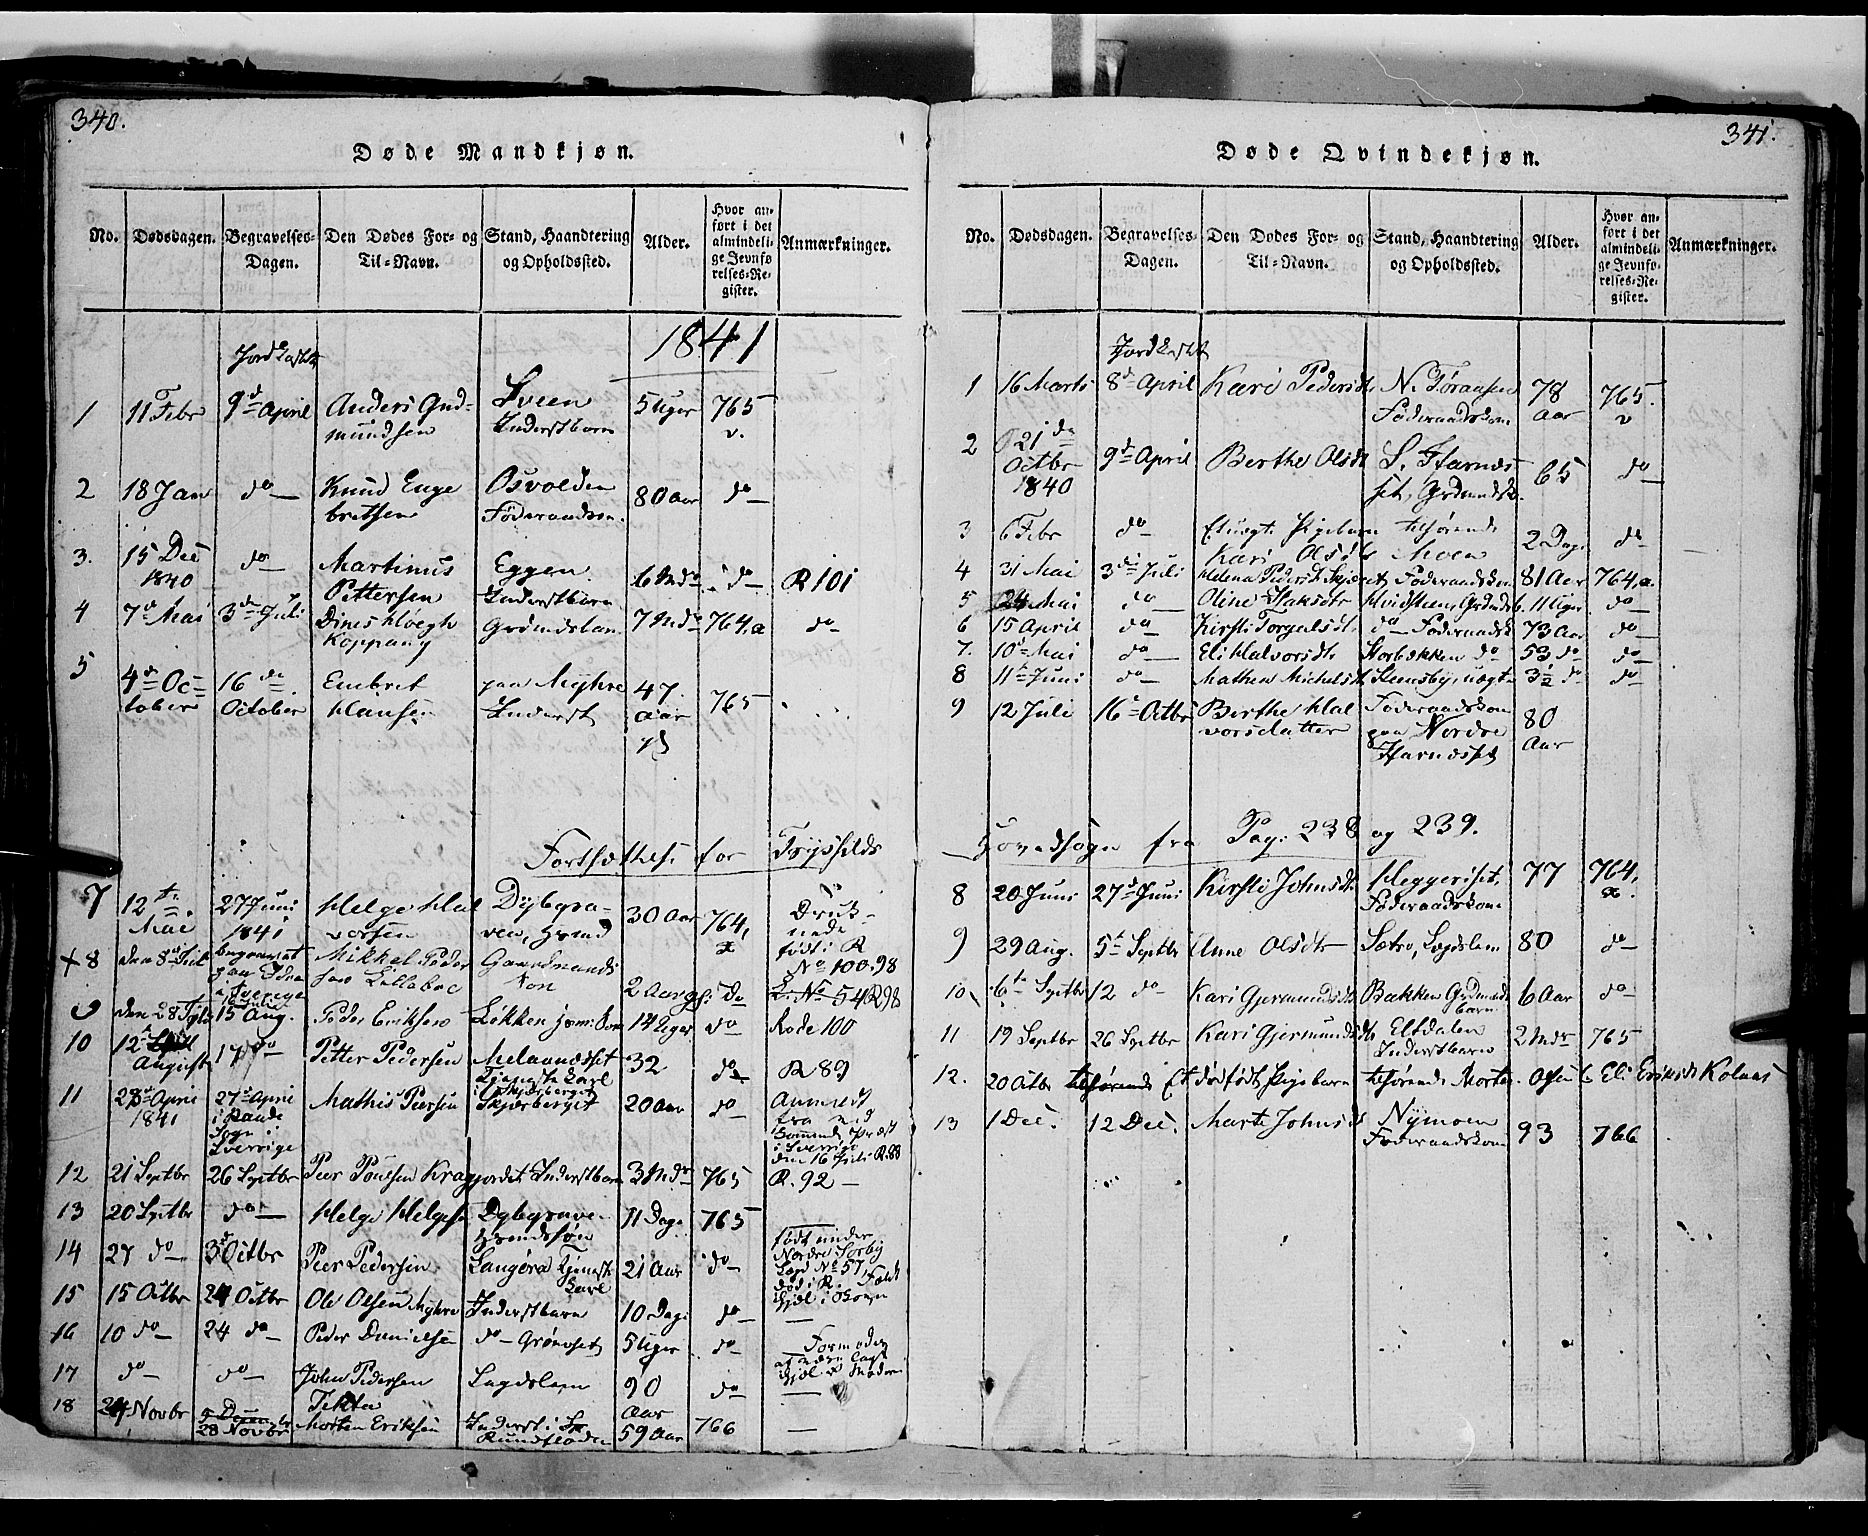 340.
Døde Mandkjøn.
No. Dødsdagen. Begravelses-Dagen. Den Dødes For- og Til-Navn. Stand, Haandtering og Opholdssted. Alder. Hvor anført i det almindelige Jevnførelses-Register. Anmærkninger.
1841
Jordkastet
1 11 Febr 9d April Anders Gudmundsen Sveen Inderstbarn 5 Uger 765 v.
2 18 Jan do Knud Engebretsen Osvolden Föderaadsm. 80 Aar do
3. 15 Dec 1840 do Martinus Pettersen Eggen Inderstbarn 6 Mdr do R 101
4 7d Mai 3de Juli Dines Höegh Koppang Grdmdsbarn 7 Mdr 764,a do
5 4d October 16de October Embret Hansen paa Myhre Inderst 47 Aar 765
Fortsættelse for Trysfilds
7 12te Mai 27 Juni 1841 Helge Halvorsen Dybgraven, 30 Aar 764, a födt i R No 100.98
+8 den 8d begravet paa Idre i Sverige Mikkel Peder Lillebo Gaardmands Søn 2 Aar do L. No 54 R 98
9 den 28 15 Aug. Peder Eriksen Løkken 14 Uger do Rode 100
10 12t August 17 do Petter Pedersen Melaandsset Tjenestekarl i Skjærberget 32 do R 89
11 28d April 1841 27d April i Sogn i Sverige Mathis Peersen Skjærberget 20 Aar do Anmeldt fra i Sverige den 16 Juli R.88
12 21 Septbr 26 Septbr Peer Poulsen Kragjordet Inderstbarn 3 Mdr 765 R. 92 —
13 20 Septbr do Helge Helgesen Dybgraven 11 Dage 765
14 27 do 3d Octbr Peer Pedersen Langöra Tjenestekarl 21 Aar do födt under Nordre Sorby Lægd No 57, död i R.
15 15 Octbr 24 Octbr Ole Olsen Myhre Inderstbarn 10 Dage do —
16 10 do 24 do Peder Danielsen do Grönoset 5 Uger do Formoden
17 do do John Pedersen Lægdslem 90 Aar do —
18 24 Novbr 28 Novbr Morten Eriksen Inderst i 59 Aar 766 —
341.
Døde Qvindekjøn.
No. Dødsdagen. Begravelses-Dagen. Den Dødes For- og Til-Navn. Stand, Haandtering og Opholdssted. Alder. Hvor anført i det almindelige Jevnførelses-Register. Anmærkninger.
Jordkastet
1 16 Marts 8d April Kari Pedersdt N. Töransen Föderaadskone 78 Aar 765. v
2 21de Octbr 1840 9d April Berthe Olsdt S. Harnæsset, Grdmdsk. 65 do
3 6 Febr do Et uægte Pigebarn tilhörende 2 Dage do
4 31 Mai 3de Juli Kari Olsdt Moen Föderaadskone 81 Aar 764,a.
5 24 Mai do Oline Isaksdtr 11 Uger do
6 15 April do Kirsti Torgalsdtr do Föderaadsk 73 Aar do
7. 10d Mai do Eli Halvorsdtr Storbækken do 53 do do
8 11t Juni do Mathea Michelsdt Steensby, uægte 3½ do do
9 12 Juli 16d Octbr Berthe Halvorsdatter Föderaadskone paa Nordre Harnæsset 80 Aar
Hovedsogn fra Pag: 238 og 239.
8 20 Juni 27d Juni Kirsti Johnsdtr Heggeriset, Föderaadskone 77 764, a.
9 29 Aug. 5t Septbr Anne Olsdtr Sætre, Lægdslem 80 do
10 6te Septbr 12 do Kari Gjermundsdtr Bakken Grdmdsbarn 6 Aar do
11 19 Septbr 26 Septbr Kari Gjermundsdtr Eltdalen Inderstbarn 2 Mdr 765
12. 20 Octbr tilhörende Et dödfödt Pigebarn tilhörende Morten Olsen & Eli Eriksdt Kolaas
13 1 Dec. 12 Dec. Marte Johnsdt Nymoen Föderaadskone 93 766